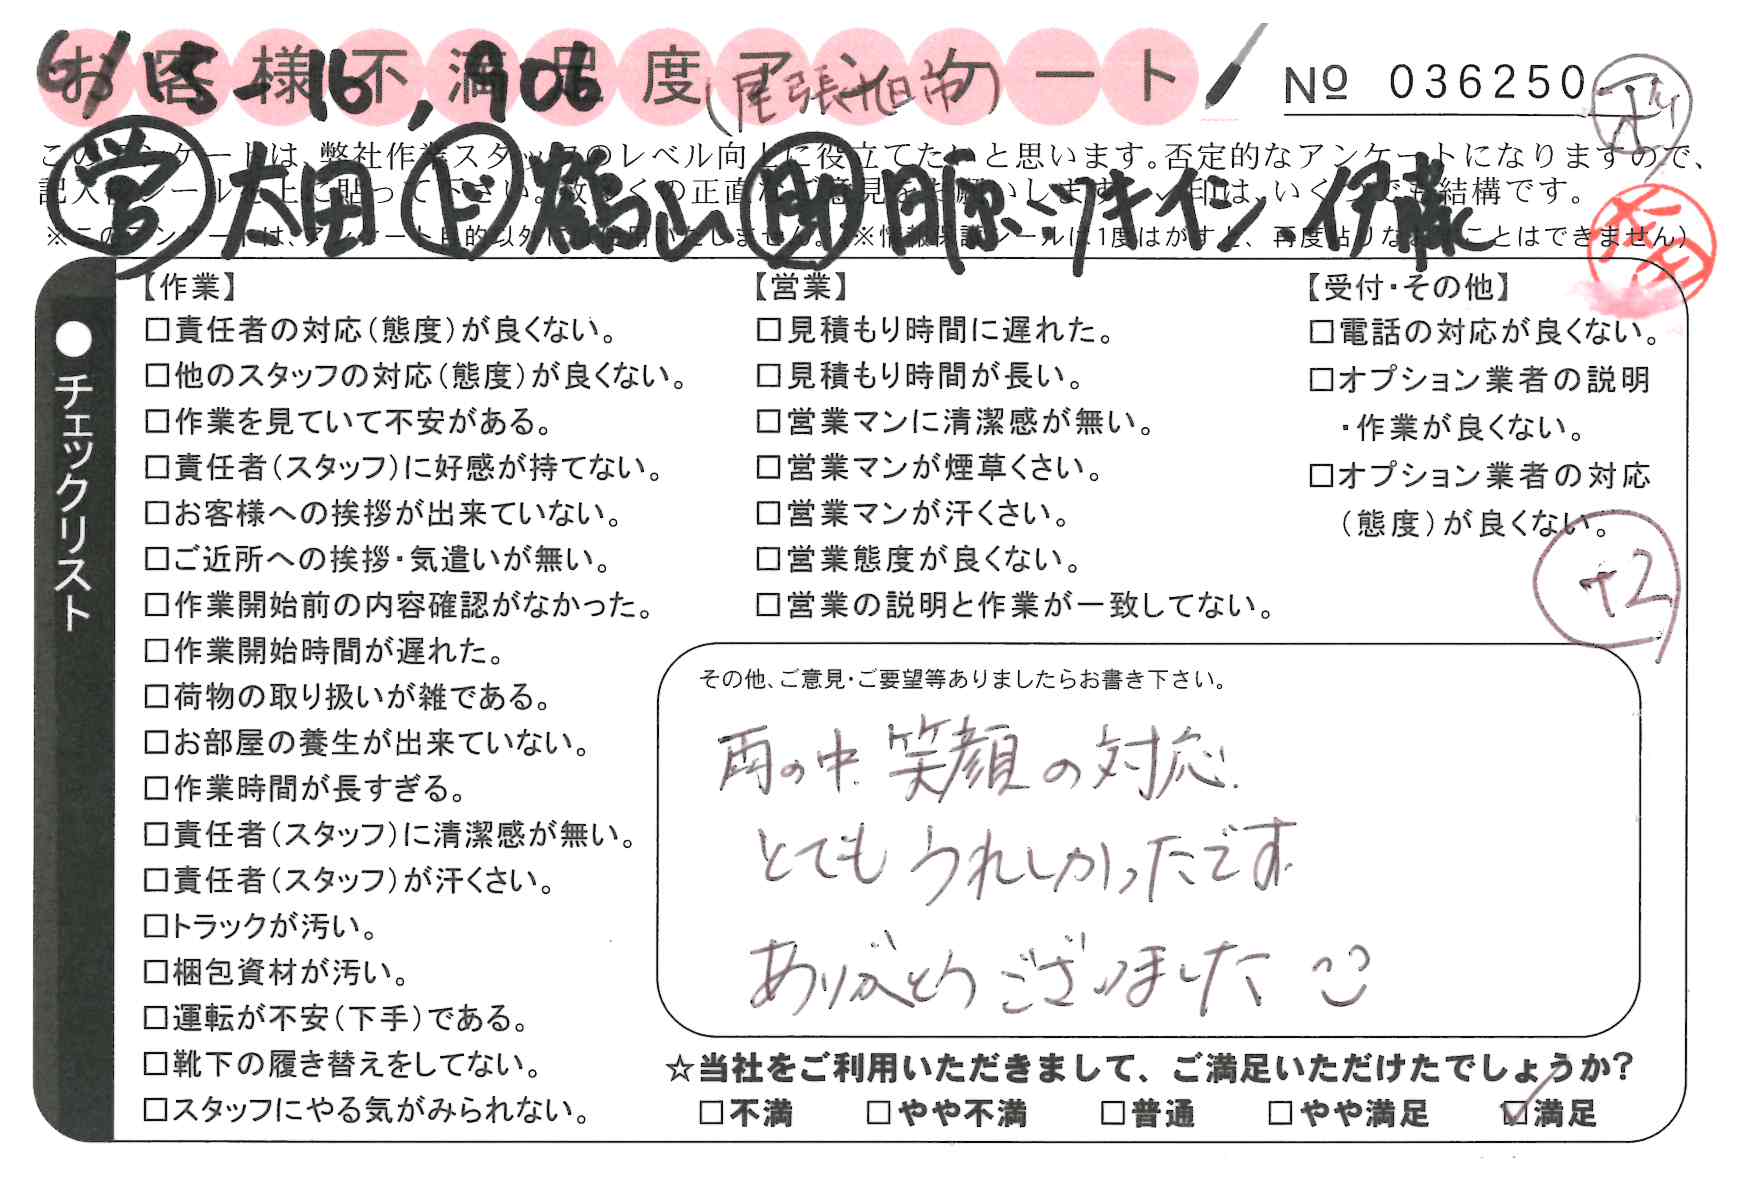 お客様不満足度アンケート
6/15-16, A06
(尾張旭市)
No 036250
このアンケートは、弊社作業スタッフのレベル向上に役立てたいと思います。否定的なアンケートになりますので、
記入後シールを上に貼って下さい。数多くの正直なご意見をお願いします。✓印は、いくつでも結構です。
※このアンケートは、アンケート目的以外には使用いたしません。(※情報保護シールは1度はがすと、再度貼りなおすことはできません)
営 太田 ド 鶴山 助 日原、シライシ、伊藤
太田
●チェックリスト
【作業】
□責任者の対応(態度)が良くない。
□他のスタッフの対応(態度)が良くない。
□作業を見ていて不安がある。
□責任者(スタッフ)に好感が持てない。
□お客様への挨拶が出来ていない。
□ご近所への挨拶・気遣いが無い。
□作業開始前の内容確認がなかった。
□作業開始時間が遅れた。
□荷物の取り扱いが雑である。
□お部屋の養生が出来ていない。
□作業時間が長すぎる。
□責任者(スタッフ)に清潔感が無い。
□責任者(スタッフ)が汗くさい。
□トラックが汚い。
□梱包資材が汚い。
□運転が不安(下手)である。
□靴下の履き替えをしてない。
□スタッフにやる気がみられない。
【営業】
□見積もり時間に遅れた。
□見積もり時間が長い。
□営業マンに清潔感が無い。
□営業マンが煙草くさい。
□営業マンが汗くさい。
□営業態度が良くない。
□営業の説明と作業が一致してない。
【受付・その他】
□電話の対応が良くない。
□オプション業者の説明
・作業が良くない。
□オプション業者の対応
(態度)が良くない。
+2
その他、ご意見・ご要望等ありましたらお書き下さい。
雨の中 笑顔の対応
とても うれしかったです
ありがとう ございました
☆当社をご利用いただきまして、ご満足いただけたでしょうか?
□不満 □やや不満 □普通 □やや満足 ☑満足